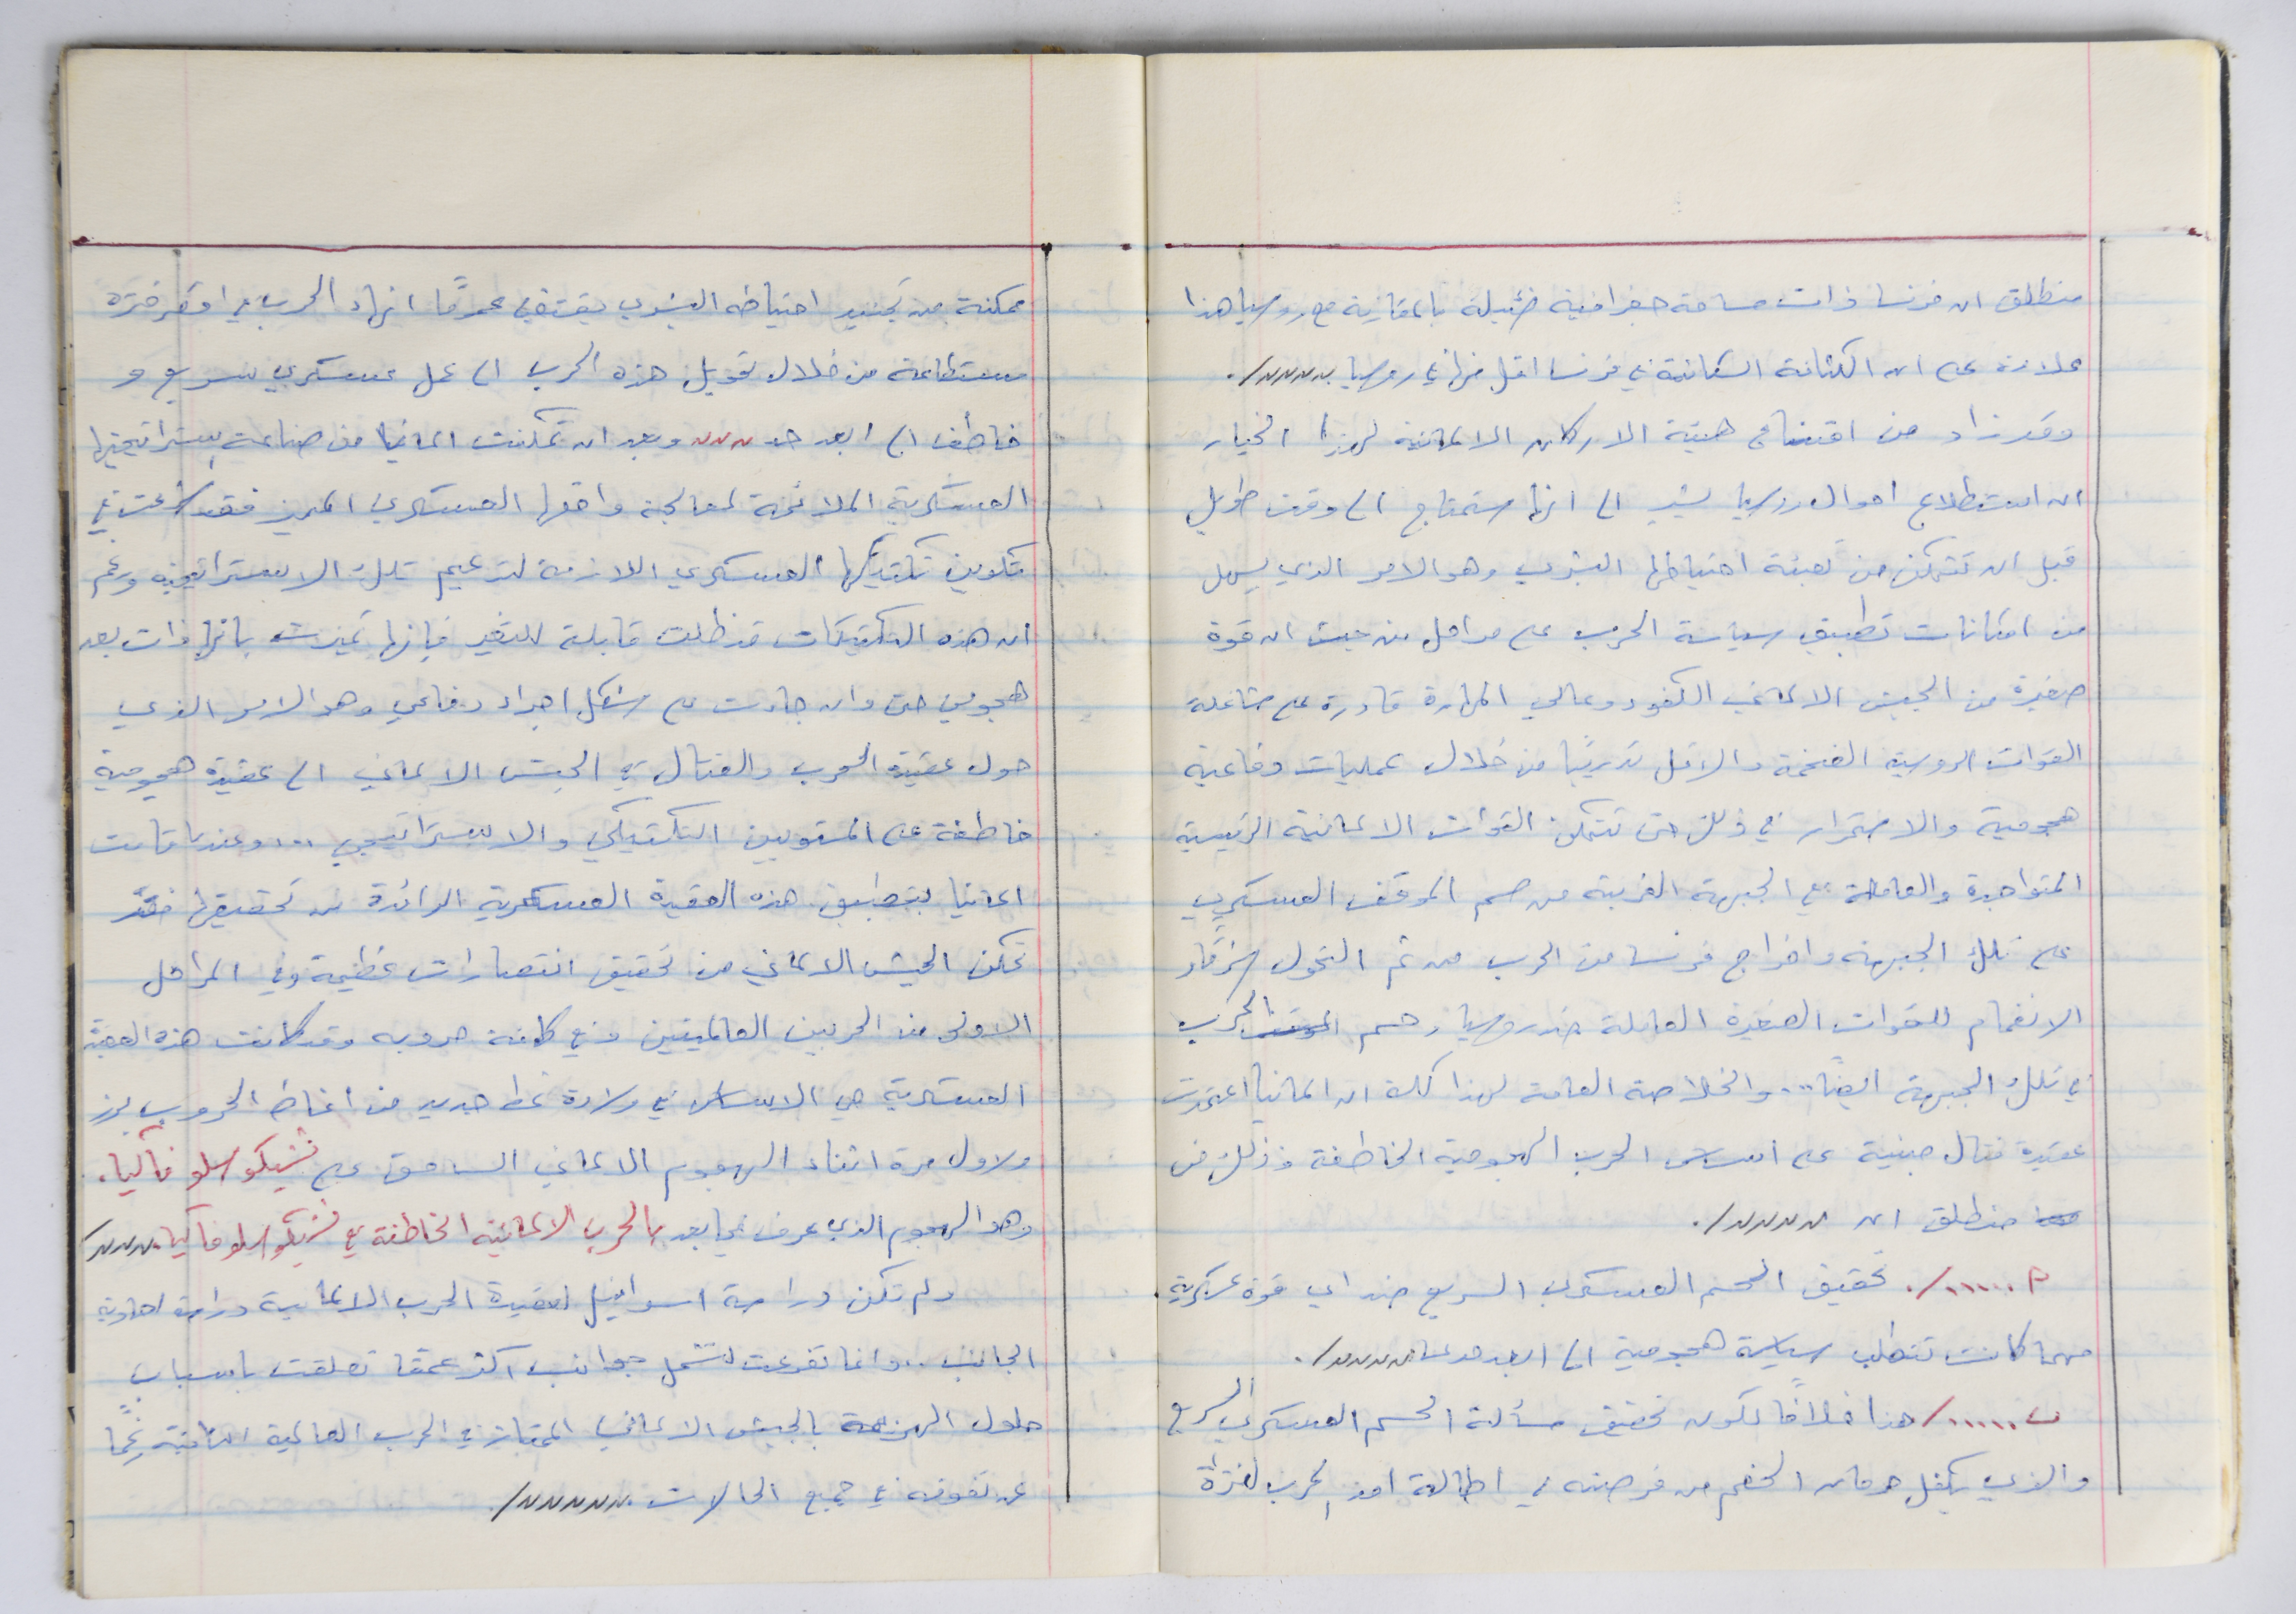 منطلق ان فرنسا ذات مساحة جغرافية ضئيلة بالمقارنة مع روسيا هذا
علاوة على ان الكثافة السكانية في فرنسا اقل منها في روسيا
وقد زاد من اقتناع هيئة الاركان الالمانية لهذا الخيار
ان استطلاع احوال روسيا يشير الى انها ستحتاج الى وقت طويل
قبل ان تتمكن من تعبئة احتياطها البشري وهو الامر الذي يسهل
من امكانات تطبيق سياسة الحرب على مراحل من حيث ان قوة
صغيرة من الجيش الالماني الكفوء وعالي المهارة قادرة على مشاغلة
القوات الروسية الضخمة والاقل تدريبًا من خلال عمليات دفاعية
هجومية والاستمرار في ذلك حتى تتمكن القوات الالمانية الرئيسية
المتواجدة والعاملة في الجبهة الغربية من حسم الموقف العسكري
على تلك الجبهة واخراج فرنسا من الحرب من ثم التحول شرقًا و
الانضمام للقوات الصغيرة العاملة ضد روسيا وحسم الحرب
في تلك الجبهة ايضًا... والخلاصة العامة لهذا كله ان المانيا اعتمدت
عقيدة قتال مبنية على اساس الحرب الهجومية الخاطفة وذلك من
منطلق ان
تحقيق الحسم العسكري السريع ضد اي قوة عسكرية
مهما كانت تتطلب سياسة هجومية الى ابعد حد
ب ...../ هذا خلافًا لكون تحقيق مسألة الحسم العسكري السريع
والذي يكفل حرمان الخصم من فرصته في اطالة امد الحرب لفترة
ممكنة من تجنيد احتياطه البشري يقتضي عمومًا انهاء الحرب في اقصر فترة
مستطاعة من خلال تحويل هذه الحرب الى عمل عسكري سريع و
خاطف الى ابعد حد وبعد ان تمكنت المانيا من صناعة إستراتيجيتها
العسكرية الملائمة لمعالجة واقعها العسكري المميز فقد شرعت في
تكوين تكتيكها العسكري اللازمة لتدعيم تلك الاستراتيجية ورغم
ان هذه التكتيكات قد ظلت قابلة للتغير فإنها تميزت بانها ذات بعد
هجومي حتى وان جاءت على شكل اجراء دفاعي وهو الامر الذي
حول عقيدة الحرب والقتال في الجيش الالماني الى عقيدة هجومية
خاطفة على المستويين التكتيكي والاستراتيجي ... وعندما قامت
المانيا بتطبيق هذه العقيدة العسكرية الرائدة تحقيقها فقد
تمكن الجيش الالماني من تحقيق انتصارات عظيمة في المراحل
الاولى من الحربين العالميتين وفي كافة حروبه وقد كانت هذه العقيدة
العسكرية هي الاساس في ولادة نمط جديد من انماط الحروب برز
ولاول مرة اثناء الهجوم الالماني الساحق على تشيكوسلوفاكيا.
وهو الهجوم الذي عرف فيما بعد بالحرب الالمانية الخاطفة في تشيكوسلوفاكيا
ولم تكن دراسة اسرائيل لعقيدة الحرب الالمانية دراسة احادية
الجانب .. وانما تفرعت لتشمل جوانب اكثر عمقا تعلقت باسباب
حلول الهزيمة بالجيش الالماني الممتاز في الحرب العالمية الثانية رغمًا
عن تفوقه في جميع الحالات